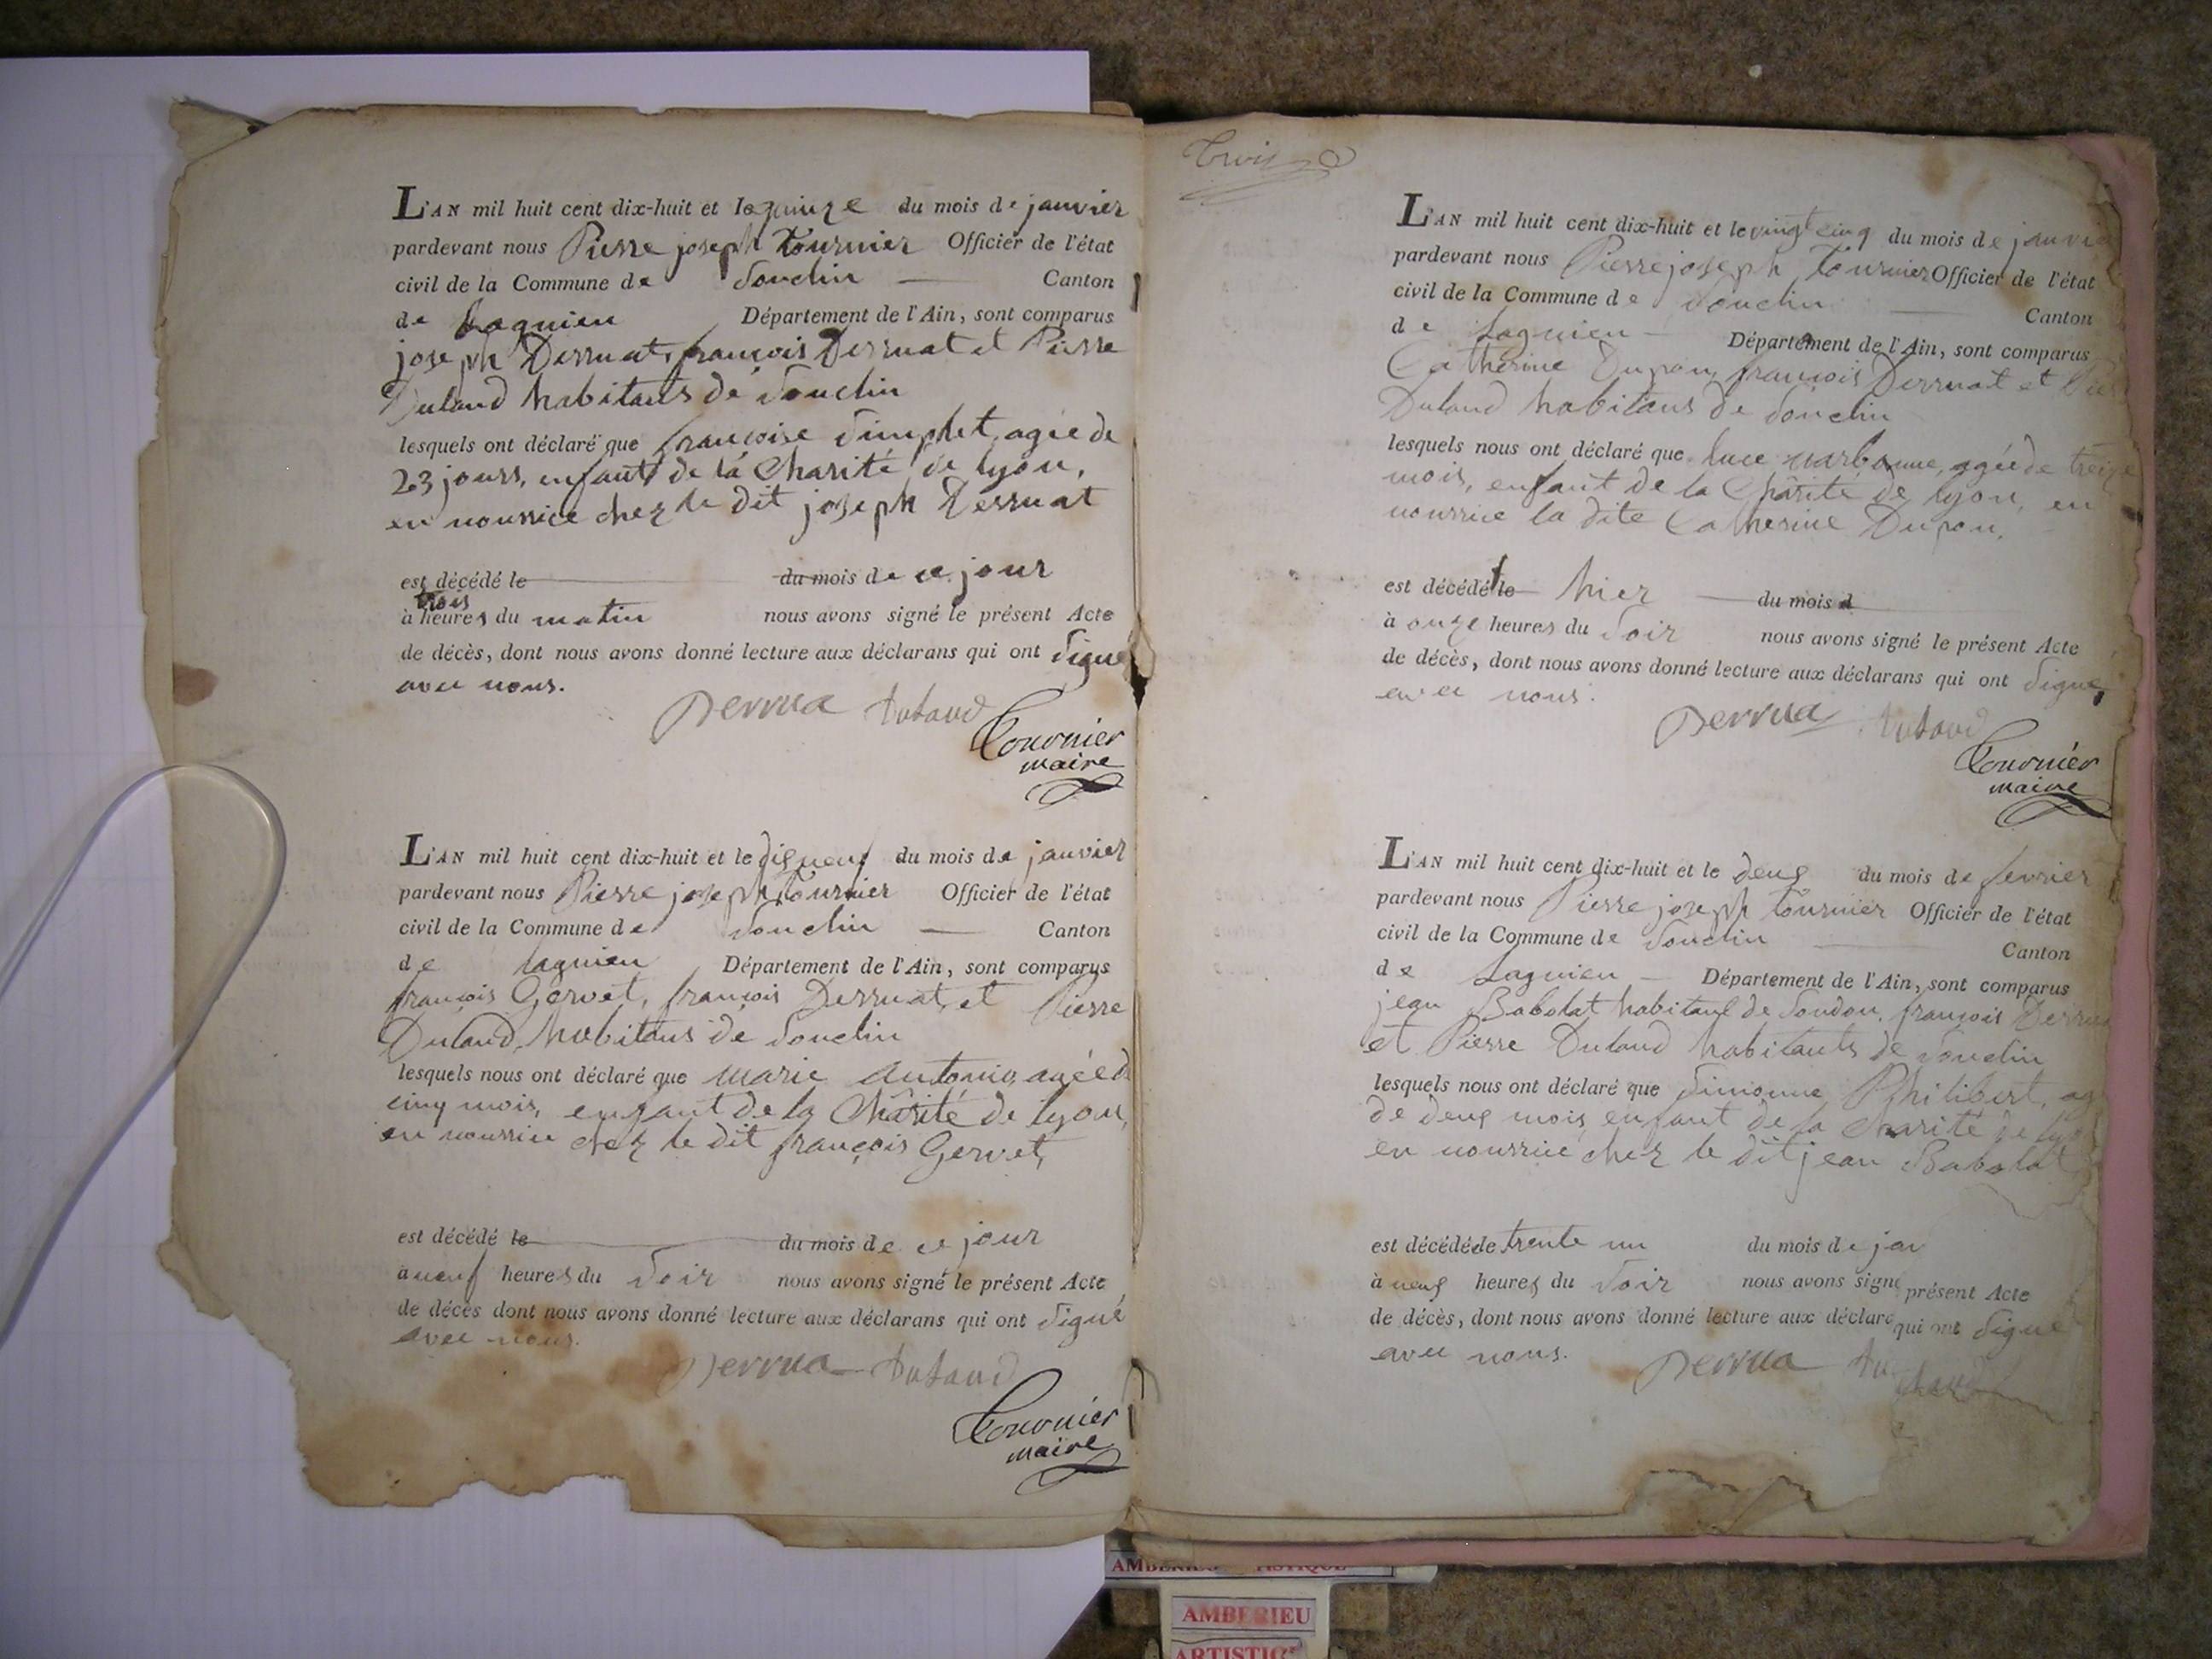 L'AN mil huit cent dix-huit et le quinze du mois de janvier
pardevant nous Pierre joseph Tournier Officier de l'état
civil de la Commune de Souclin Canton
de Lagnieu Département de l'Ain, sont comparus
joseph Derruat, françois Derruat et Pierre
Dutand habitants de Souclin
lesquels ont déclaré que françoise Simplet, agée de
23 jours, enfant de la Charité de lyon,
en nourrice chez le dit joseph Derruat
est décédé le du mois de ce jour
trois
à heures du matin nous avons signé le présent Acte
de décès, dont nous avons donné lecture aux déclarans qui ont signé
avec nous.
Derrua Dutaud
Tournier
maire
L'AN mil huit cent dix-huit et le disneuf du mois de janvier
pardevant nous Pierre joseph Tournier Officier de l'état
civil de la Commune de Souclin Canton
de lagnieu Département de l'Ain, sont comparus
françois Gervet, françois Derruat, et Pierre
Dutaud, habitans de Souclin
lesquels nous ont déclaré que marie antonio, agée d
cinq mois, enfant de la Charité de lyon,
en nourrice chez le dit françois Gervet,
est décédé le du mois de ce jour
à neuf heures du soir nous avons signé le présent Acte
de décès dont nous avons donné lecture aux déclarans qui ont signé
avec nous.
Derrua Dutaud
Tournier
maire
Trois
L'AN mil huit cent dix-huit et le vingt cinq du mois de janvi
pardevant nous Pierre joseph Tournier Officier de l'état
civil de la Commune de Souclin Canton
de Lagnieu Département de l'Ain, sont comparus
Catherine Dupon, françois Derruat et Pie
Dutaud habitans de Souclin
lesquels nous ont déclaré que luce narbonne, agée de treize
mois, enfant de la Charité de lyon, en
nourrice la dite Catherine Dupon,
est décédé le hier du mois d
à onze heures du soir nous avons signé le présent Acte
de décès, dont nous avons donné lecture aux déclarans qui ont signé
avec nous.
Derrua Dutaud
Tournier
maire
L'AN mil huit cent dix-huit et le deux du mois de fevrier
pardevant nous Pierre joseph Tournier Officier de l'état
civil de la Commune de Souclin Canton
de Lagnieu Département de l'Ain, sont comparus
jean Babolat habitant de Soudon, françois Derrua
et Pierre Dutaud habitants de Souclin
lesquels nous ont déclaré que Simonne Philibert, ag
de deux mois, enfant de la Charité de lyo
en nourrice chez le dit jean Babolat
est décédé le trente un du mois de jan
à neuf heures du soir nous avons signé présent Acte
de décès, dont nous avons donné lecture aux déclara qui ont signé
avec nous.
Derrua Dutaud
AMBERIEU
AMBERIEU
ARTISTIQ